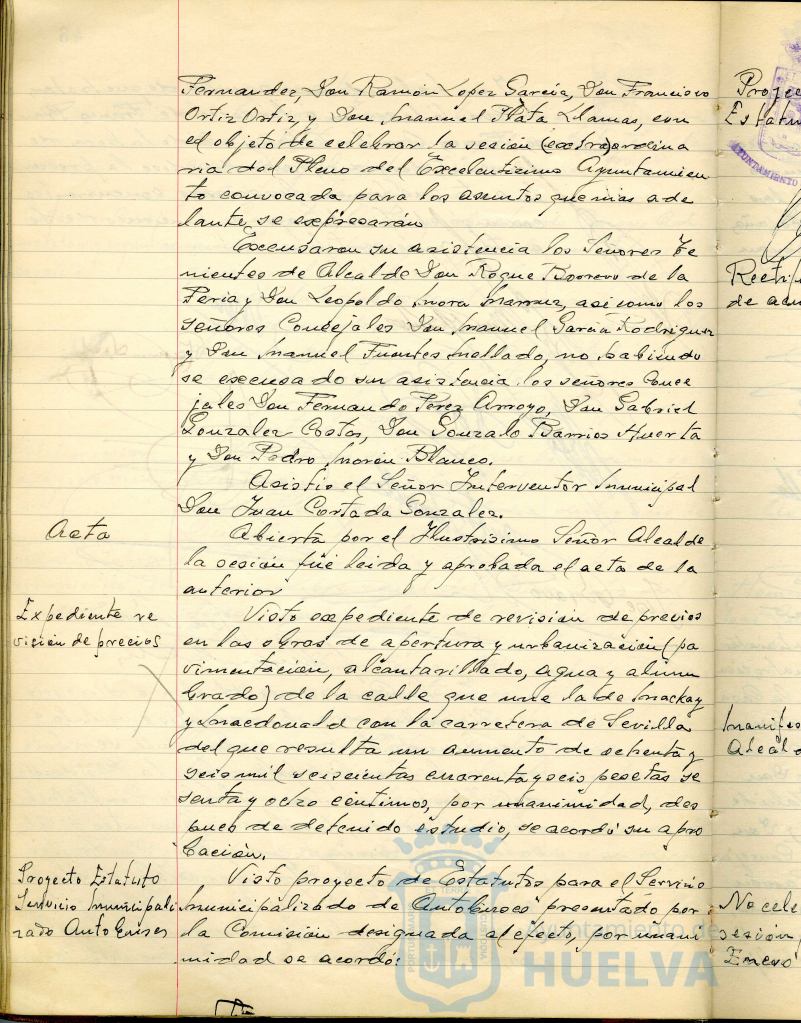 Fernandez, Don Ramón Lopez Garcia, Don Francisco
Ortiz Ortiz, y Don Manuel Plata Llamas, con
el objeto de celebrar la sesión (extra)ordina
ria del Pleno del Excelentisimo Ayuntamien
to convocada para los asuntos que mas ade
lante se expresarán
Excusaron su asistencia los Señores Te
nientes de Alcalde Don Roque Borrero de la
Feria y Don Leopoldo Mora asi como los
señores Concejales Don Manuel Garcia Rodriguez
y Don Manuel Fuentes Mellado, no habiendo
se excusado su asistencia los señores Conce
jales Don Fernando Perez Arroyo, Don Gabriel
Gonzalez Costas, Don Gonzalo Barrios Huerta
y Don Pedro Morón Blanco.
Asistio el Señor Interventor Municipal
Don Juan Cortada Gonzalez.
Acta
Abierta por el Ilustrisimo Señor Alcalde
la sesión fué leida y aprobada el acta de la
anterior
Expediente re
visión de precios
Visto expediente de revisión de precios
en las obras de apertura y urbanización (pa
vimentación, alcantarillado, agua y alum
brado) de la calle que une la de Mackay
y Macdonald con la carretera de Sevilla
del que resulta un aumento de setenta y
seis mil seiscientas cuarenta y seis pesetas se
senta y ocho centimos, por unanimidad, des
pues de detenido estudio, se acordó su apro
bación.
Proyecto Estatuto
Servicio Municipali
zado Autobuses
Visto proyecto de Estatutos para el Servicio
Municipalizado de Autobuses presentado por
la Comisión designada al efecto, por unani
midad se acordó:
Proyec
Estatu
AYUNTAMIENTO
Rectifi
de act
Manifes
Alcal
No cele
sesión
Enero
Ayuntamiento de
HUELVA